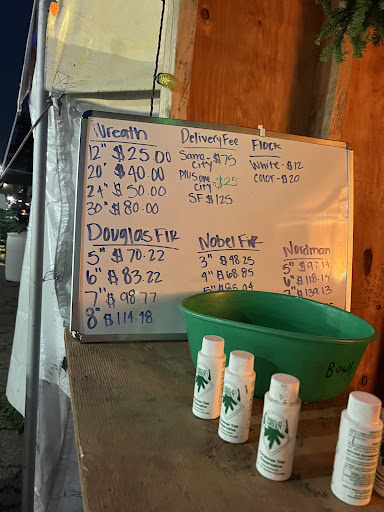 Wreath
12" $25.00
20" $40.00
24" $50.00
30" $80.00
Delivery Fee
Same - $75
City
Plus one - $25
City
SF $125
Flock
White - $12
Color - $20
Douglas Fir
5" $70.22
6" $83.22
7" $98.77
8" $114.18
Nobel Fir
3" $48.25
4" $68.85
Nordman
5" $97.14
6" $118.14
Bowl